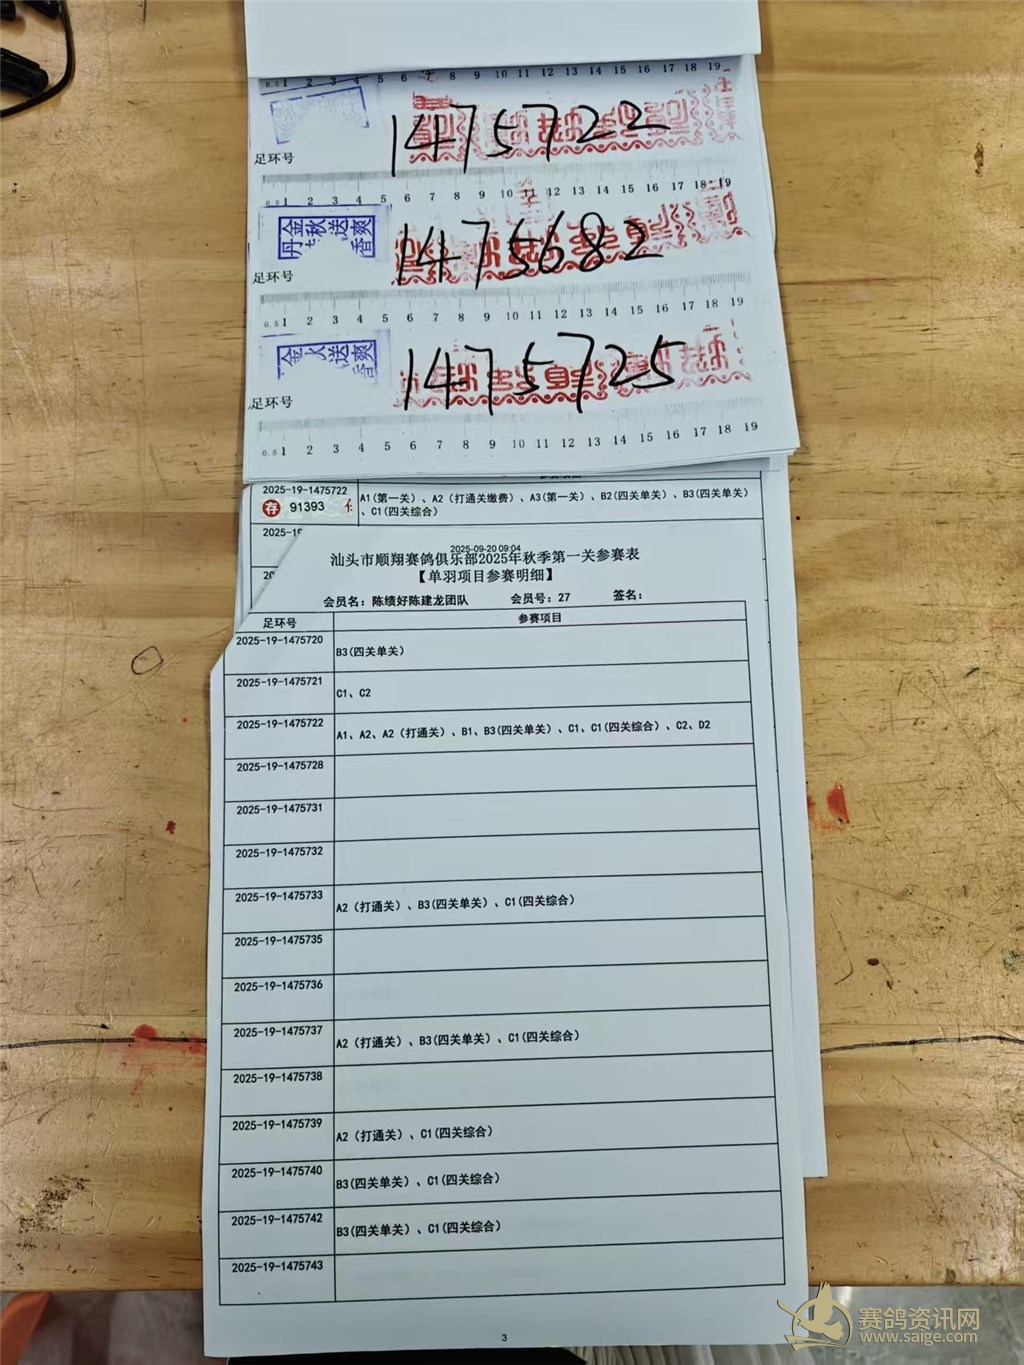 0.5 1 2 3 4 5 6 7 8 9 10 11 12 13 14 15 16 17 18 19
1475722
足环号
0.5 1 2 3 4 5 6 7 8 9 10 11 12 13 14 15 16 17 18 19
丹金秋送爽
香
1475682
足环号
0.5 1 2 3 4 5 6 7 8 9 10 11 12 13 14 15 16 17 18 19
金 送爽
香
1475725
足环号
0.5 1 2 3 4 5 6 7 8 9 10 11 12 13 14 15 16 17 18 19
2025-19-1475722
存 91393
A1(第一关)、A2(打通关缴费)、A3(第一关)、B2(四关单关)、B3(四关单关)
、C1(四关综合)
2025-19
20
2025-09-20 09:04
汕头市顺翔赛鸽俱乐部2025年秋季第一关参赛表
【单羽项目参赛明细】
会员名：陈绩好陈建龙团队 会员号：27 签名：
足环号 参赛项目
2025-19-1475720 B3(四关单关)
2025-19-1475721 C1、C2
2025-19-1475722 A1、A2、A2(打通关)、B1、B3(四关单关)、C1、C1(四关综合)、C2、D2
2025-19-1475728
2025-19-1475731
2025-19-1475732
2025-19-1475733 A2(打通关)、B3(四关单关)、C1(四关综合)
2025-19-1475735
2025-19-1475736
2025-19-1475737 A2(打通关)、B3(四关单关)、C1(四关综合)
2025-19-1475738
2025-19-1475739 A2(打通关)、C1(四关综合)
2025-19-1475740 B3(四关单关)、C1(四关综合)
2025-19-1475742 B3(四关单关)、C1(四关综合)
2025-19-1475743
3
赛鸽资讯网
www.saige.com